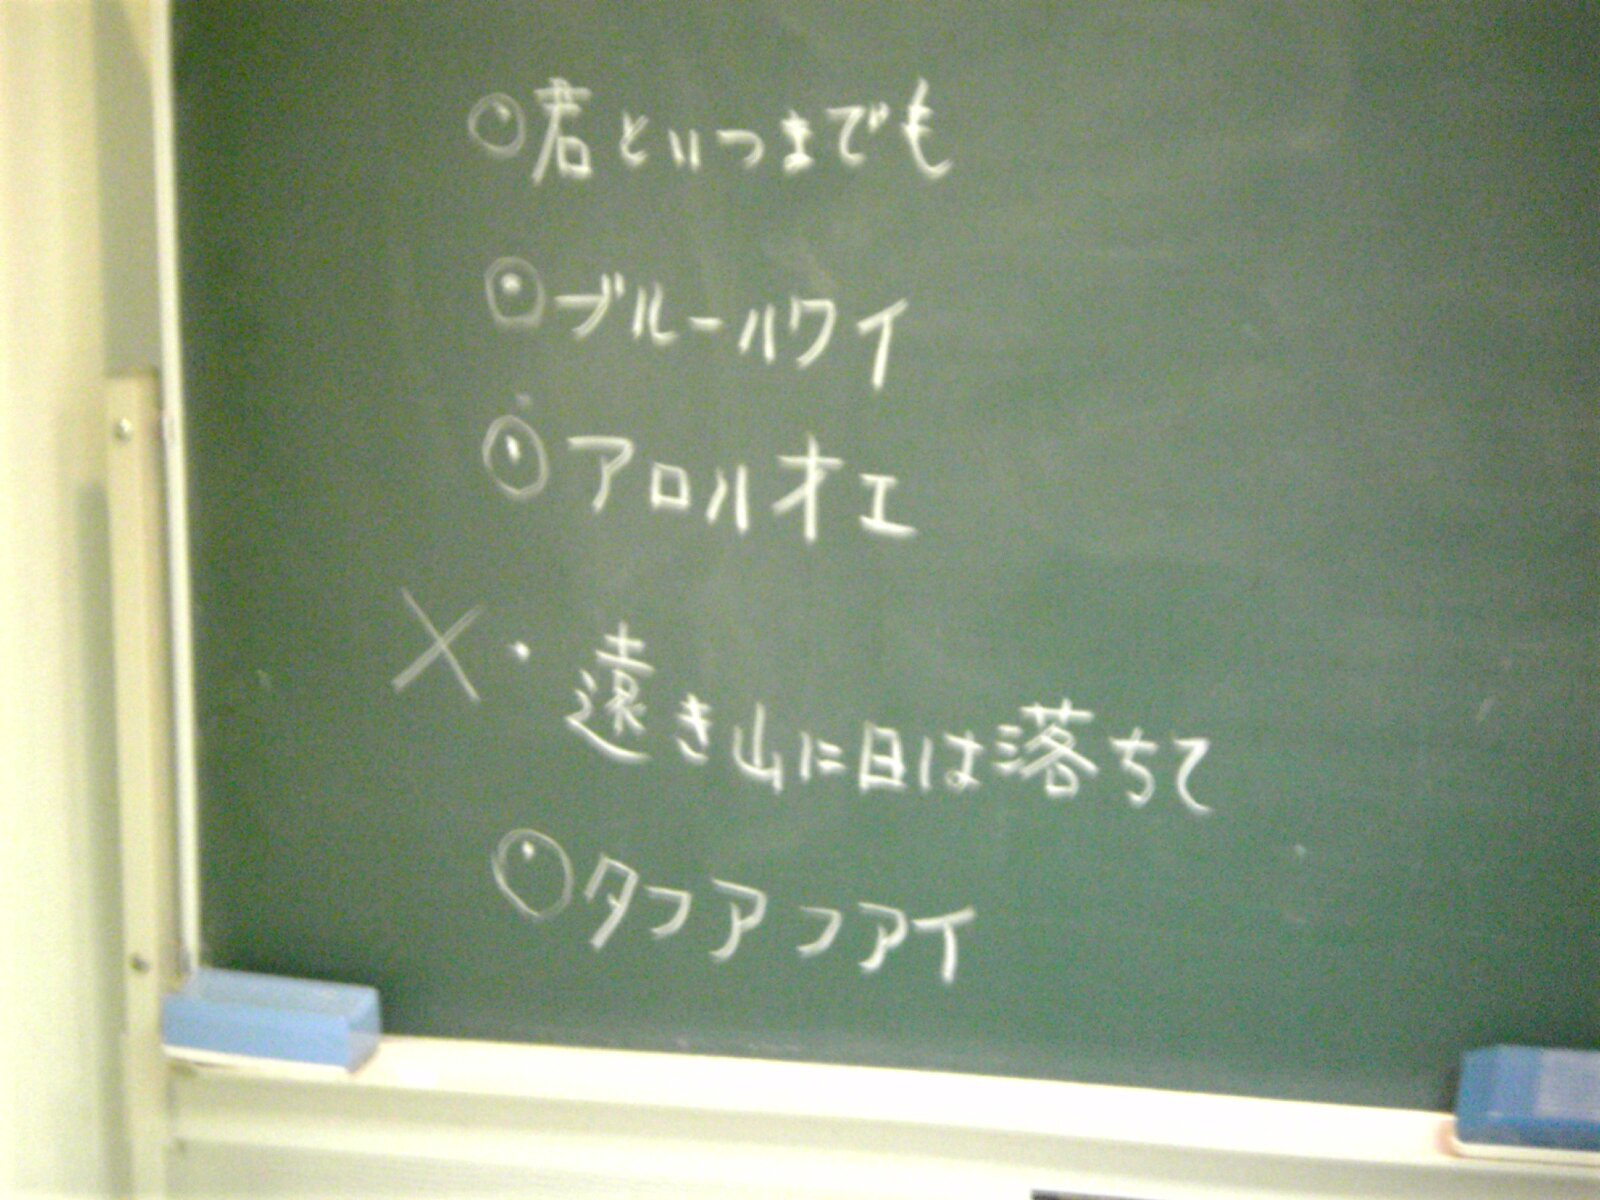 ○君といつまでも
○ブルーハワイ
○アロハオエ
×・遠き山に日は落ちて
○タファファアイ